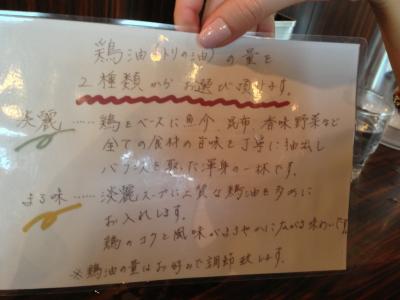 鶏油(トリの油)の量を
2種類からお選び頂けます。
淡麗……鶏をベースに魚介、昆布、香味野菜など
全ての食材の旨味を丁寧に抽出し
バランスを取った渾身の一杯です。
まろ味……淡麗スープに上質な鶏油を多めに
お入れします。
鶏のコクと風味がまろやかに広がる味わいです。
※鶏油の量はお好みで調節致します。